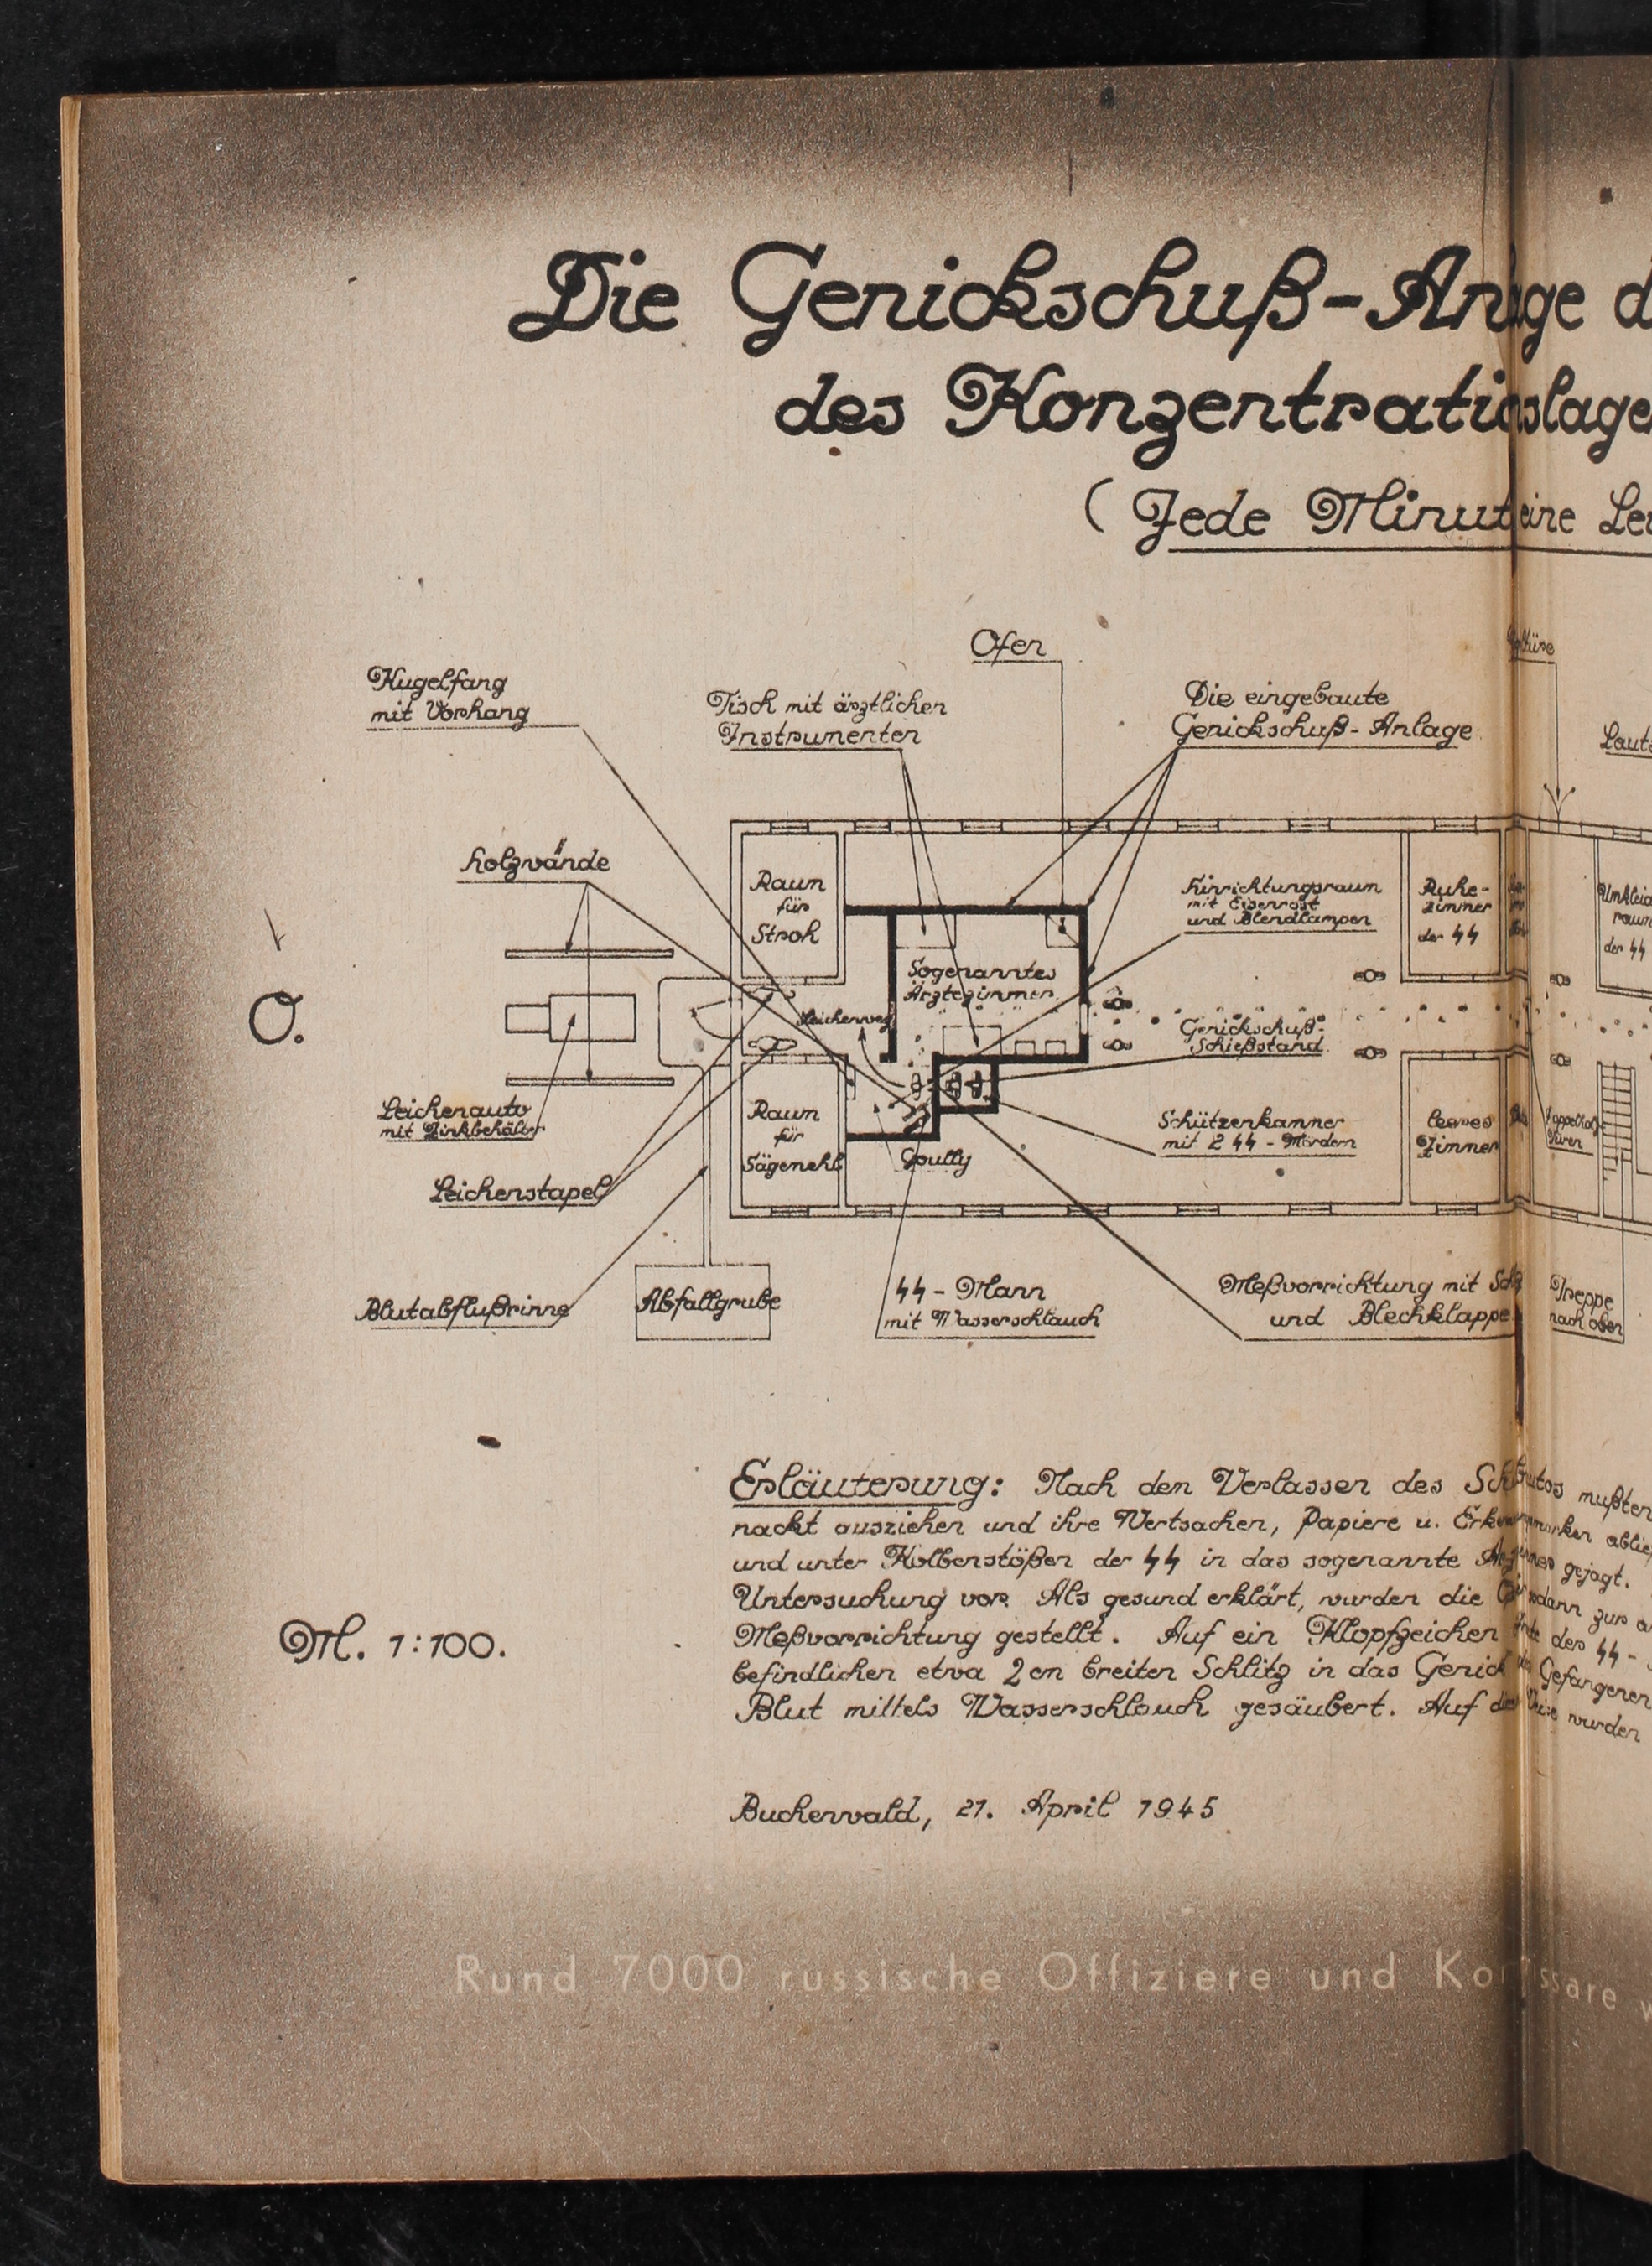 Die Genickschuß-An ge d
des Konzentrati slage
( Jede Minut eine Lei
Ofen
Kugelfang
mit Vorhang
Tisch mit ärztlichen
Instrumenten
Die eingebaute
Genickschuß-Anlage
Laut
Holzwände
Raum
für
Stroh
Hinrichtungsraum
mit Eisenrost
und Blendlampen
Ruhe-
zimmer
der SS
Umkleid
raum
der SS
Sogenanntes
Ärztezimmer
O.
Leichenweg
Genickschuß-
Schießstand
Leichenauto
mit Zinkbehälter
Raum
für
Sägemehl
Schützenkammer
mit 2 SS - Mördern
leeres
Zimmer
Türen
Gully
Leichenstapel
Blutabflußrinne
Abfallgrube
SS - Mann
mit Wasserschlauch
Meßvorrichtung mit
und Blechklappe
Treppe
nach oben
Erläuterung: Nach dem Verlassen des mußten
nackt ausziehen und ihre Wertsachen, Papiere u. Erk marken ablief
und unter Kolbenstößen der SS in das sogenannte gejagt.
Untersuchung vor. Als gesund erklärt, wurden die dann zur
Meßvorrichtung gestellt. Auf ein Klopfzeichen der SS -
befindlichen etwa 2 cm breiten Schlitz in das Genick Gefangenen
Blut mittels Wasserschlauch gesäubert. Auf wurden
M. 1:100.
Buchenwald, 21. April 1945
Rund 7000 russische Offiziere und Ko issare w